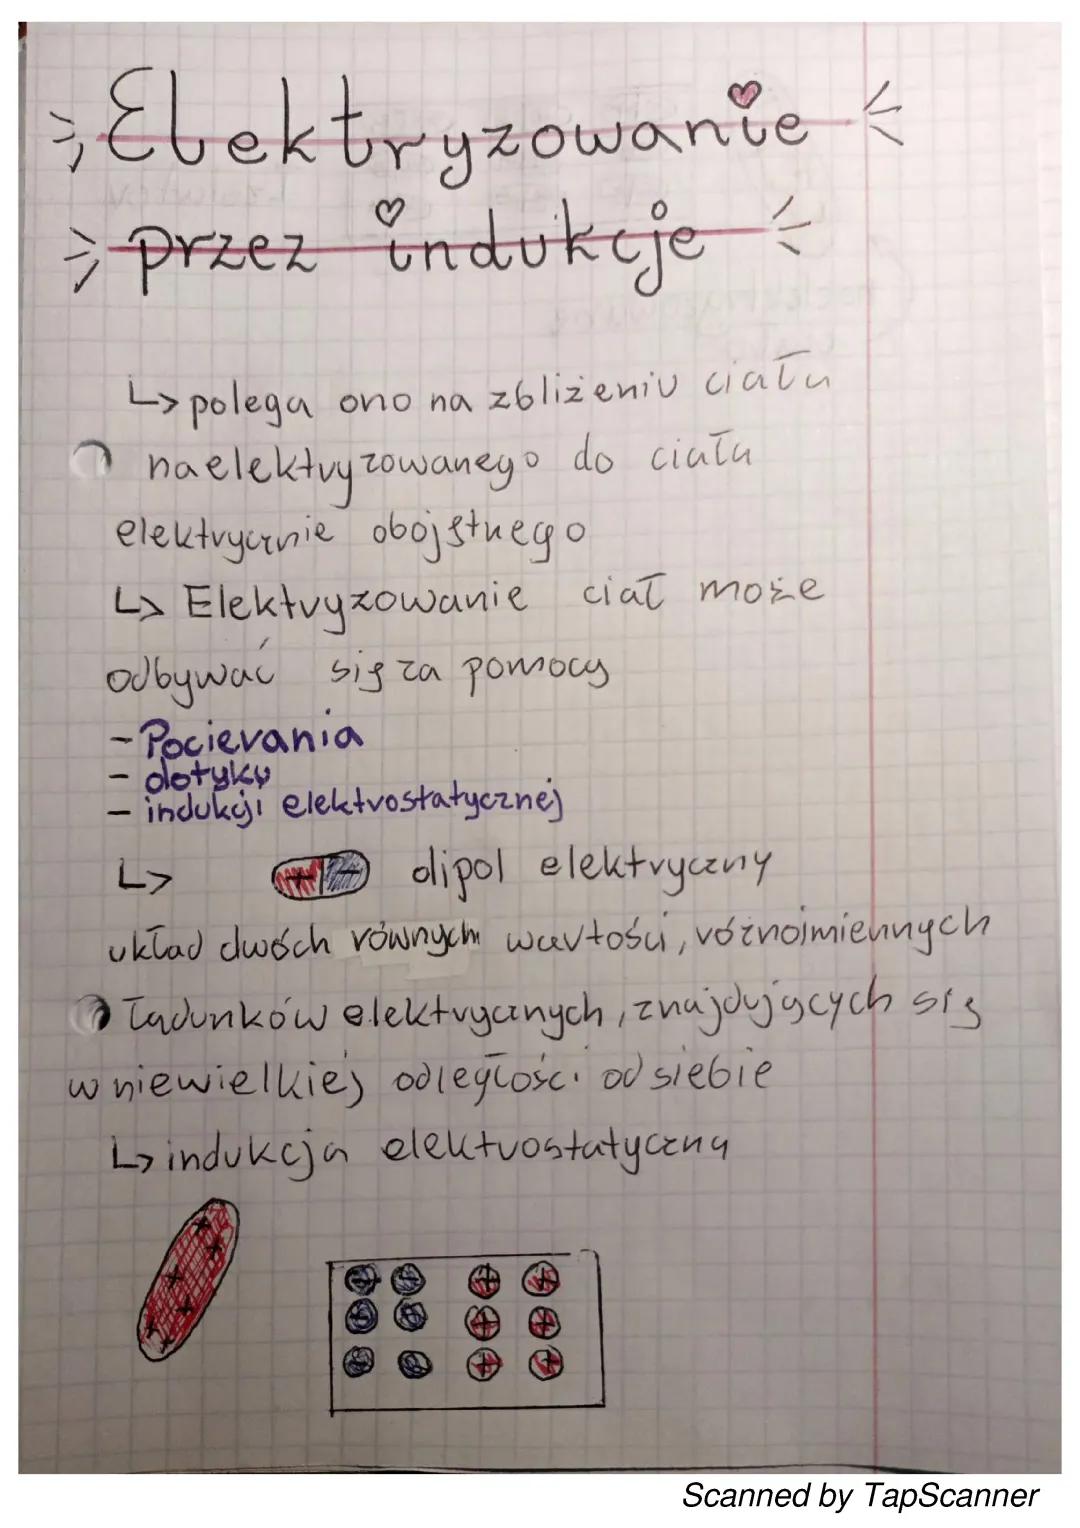 Elektryzowanie
przez indukcje
↳ polega ono na zbliżeniu ciała
naelektryzowanego do ciała
elektrycznie obojętnego
↳ Elektryzowanie ciał może
odbywać się za pomocą
- Pocierania
- dotyku
- indukcji elektrostatycznej
↳ + - dipol elektryczny
układ dwóch równych wartości, różnoimiennych
ładunków elektrycznych, znajdujących się
w niewielkiej odległości od siebie
↳ indukcja elektrostatyczna
Scanned by TapScanner